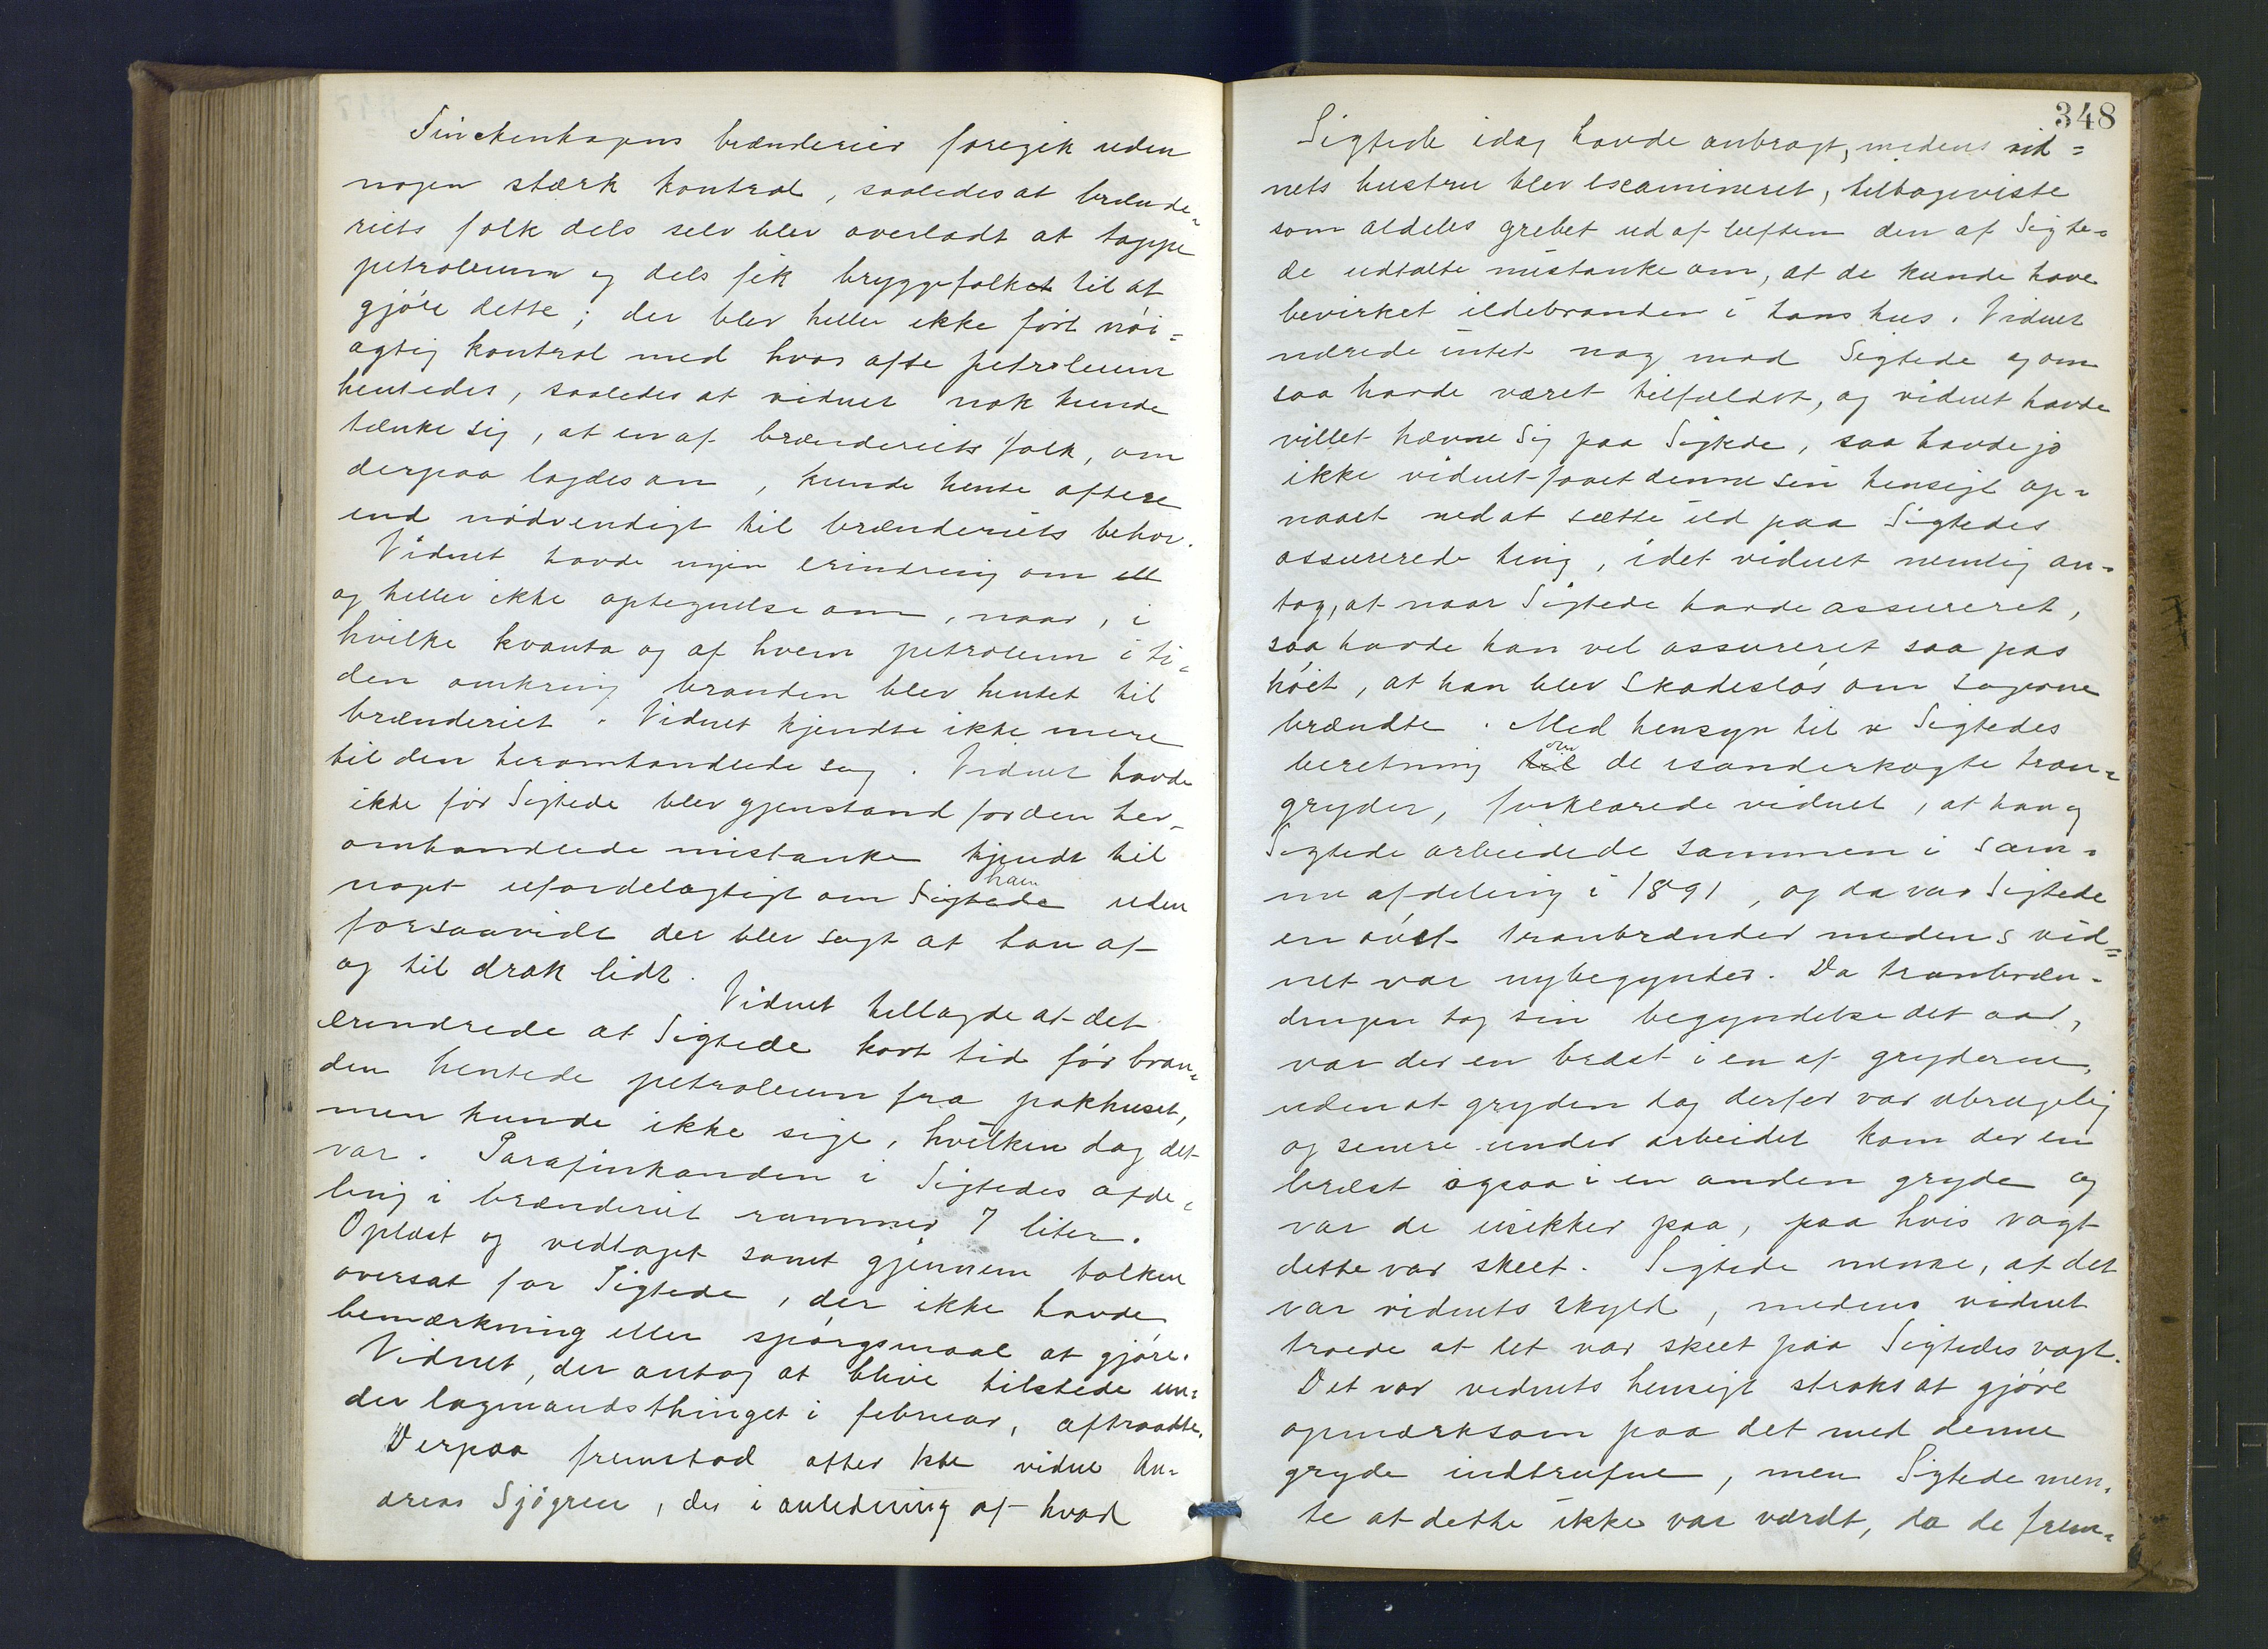 Finckenhagens brænderier foregik uden
nogen stærk kontrol, saaledes at brænde-
riets folk dels selv blev overladt at tappe
petroleum og dels fik bryggefolket til at
gjøre dette; der blev heller ikke ført nøi-
agtig kontrol med hvor ofte petroleum
hentedes, saaledes at vidnet nok kunde
tænke sig, at en af brænderiets folk, om
derpaa lagdes an, kunde hente oftere
end nødvendigt til brænderiets behov.
Vidnet havde ingen erindring om
og heller ikke optegnelse om, naar, i
hvilke kvanta og af hvem petroleum i ti-
den omkring branden blev hentet til
brænderiet. Vidnet kjendte ikke mere
til den heromhandlede sag. Vidnet havde
ikke før Sigtede blev gjenstand for den her-
omhandlede mistanke kjendt til
noget ufordelagtigt om Sigtede ham uden
forsaavidt der blev sagt at han af
og til drak lidt.
Vidnet tillagde at det
erindrede at Sigtede kort tid før bran-
den hentede petroleum fra pakhuset,
men kunde ikke sige, hvilken dag det
var. Parafinkanden i Sigtedes afde-
ling i brænderiet rummer 7 liter.
Oplæst og vedtaget samt gjennem tolken
oversat for Sigtede, der ikke havde
bemærkning eller spørgsmaal at gjøre.
Vidnet, der antog at blive tilstede un-
der lagmandsthinget i februar, aftraadte.
Derpaa fremstod atter 1ste vidne An-
dreas Sjøgren, der i anledning af hvad
348
Sigtede idag havde anbragt, medens vid-
nets hustru blev examineret, tilbageviste
som aldeles grebet ud af luften den af Sigte-
de udtalte mistanke om, at de kunde have
bevirket ildebranden i hans hus. Vidnet
nærede intet nag mod Sigtede og om
saa havde været tilfældet, og vidnet havde
villet hævne sig paa Sigtede, saa havde jo
ikke vidnet faaet denne sin hensigt op-
naaet ved at sætte ild paa Sigtedes
assurerede ting, idet vidnet nemlig an-
tog, at naar Sigtede havde assureret,
saa havde han vel assureret saa pas
høit, at han blev skadesløs om sagerne
brændte. Med hensyn til Sigtedes
beretning til om de isønderkogte tran-
gryder, forklarede vidnet, at han og
Sigtede arbeidede sammen i sam-
me afdeling i 1891, og da var Sigtede
en øvet tranbrænder medens vid-
net var nybegynder. Da tranbræn-
dingen tog sin begyndelse det aar,
var der en bræst i en af gryderne,
uden at gryden dog derfor var ubrugelig
og senere under arbeidet kom der en
bræst ogsaa i en anden gryde og
var de usikker paa, paa hvis vagt
dette var skeet. Sigtede mente, at det
var vidnets skyld, medens vidnet
troede at det var skeet paa Sigtedes vagt.
Det var vidnets hensigt straks at gjøre
opmærksom paa det med denne
gryde indtrufne, men Sigtede men-
te at dette ikke var værdt, da de frem-